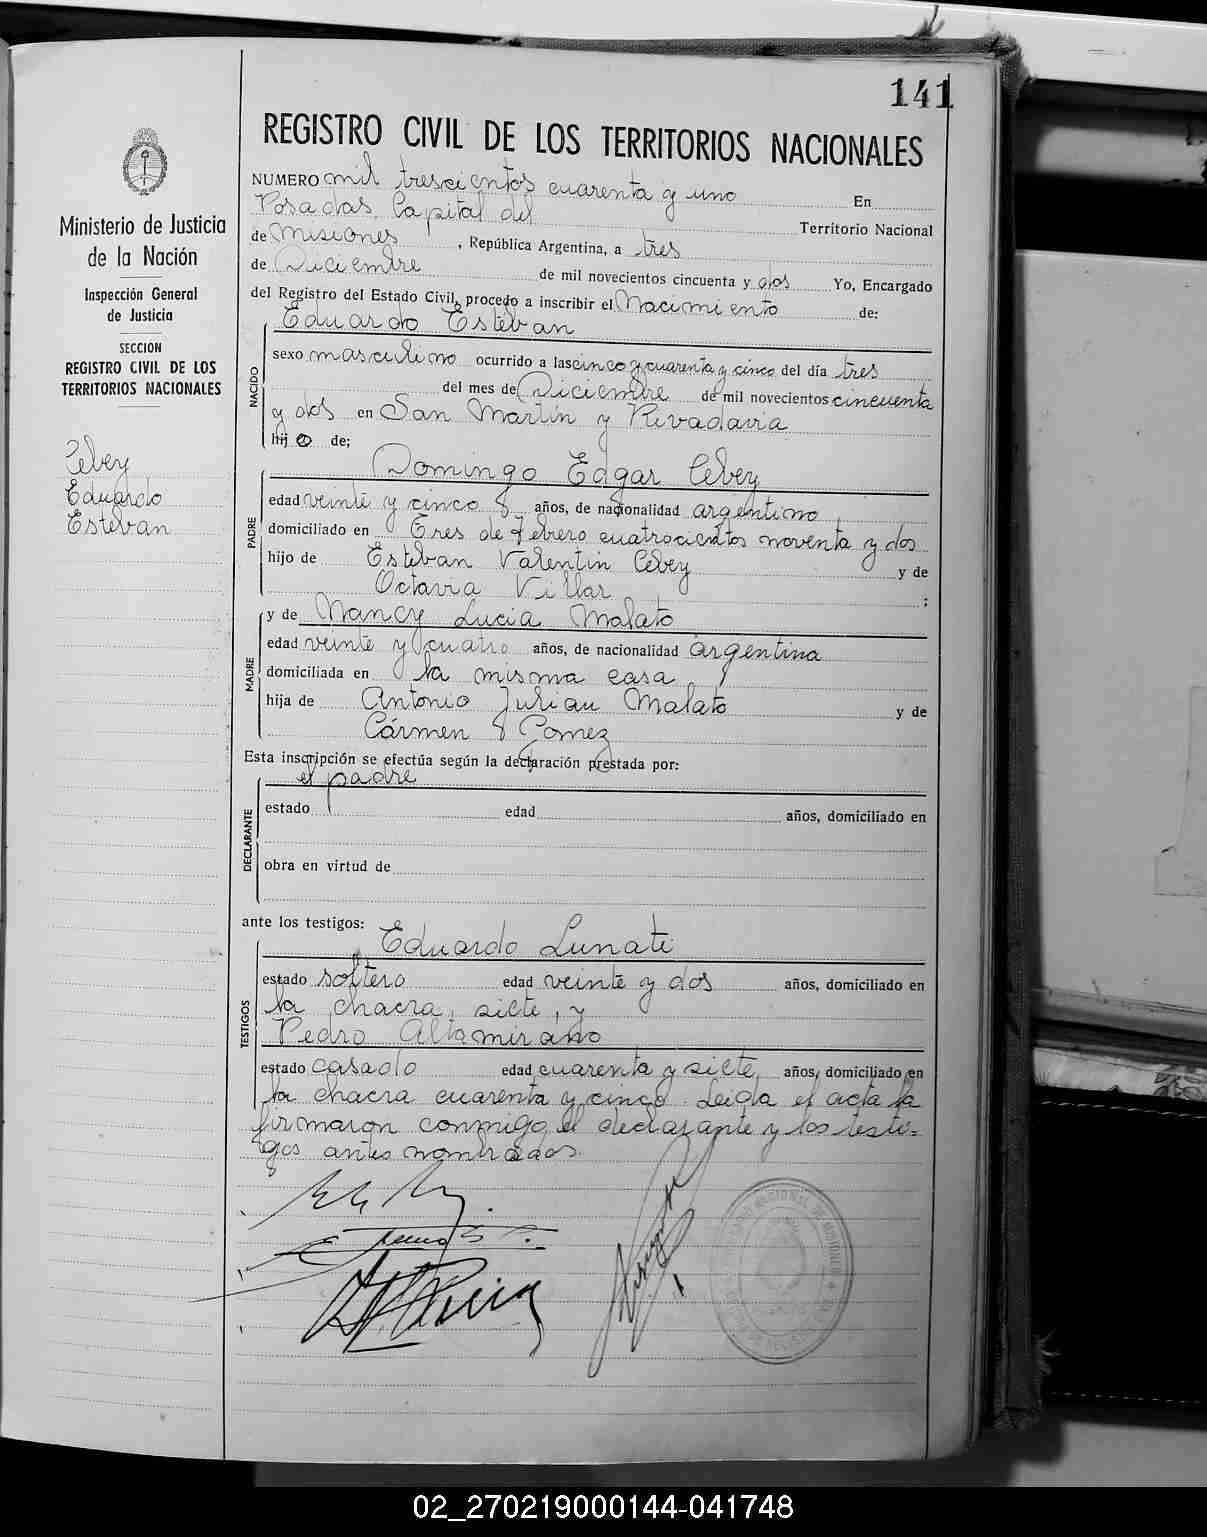 141
REGISTRO CIVIL DE LOS TERRITORIOS NACIONALES
Ministerio de Justicia
de la Nación
Inspección General
de Justicia
SECCION
REGISTRO CIVIL DE LOS
TERRITORIOS NACIONALES
Cebey
Eduardo
Estéban
NUMERO mil trescientos cuarenta y uno En
Posadas, Capital del Territorio Nacional
de Misiones, República Argentina, a tres
de Diciembre de mil novecientos cincuenta y dos Yo, Encargado
del Registro del Estado Civil, procedo a inscribir el Nacimiento de:
Eduardo Estéban
NACIDO
sexo masculino ocurrido a las cinco y cuarenta y cinco del día tres
del mes de Diciembre de mil novecientos cincuenta
y dos en San Martín y Rivadavia
hijo de;
Domingo Edgar Cebey
PADRE
edad veinte y cinco años, de nacionalidad argentino
domiciliado en Tres de Febrero cuatrocientos noventa y dos
hijo de Estéban Valentín Cebey y de
Octavia Villar ;
y de Nancy Lucia Malato
MADRE
edad veinte y cuatro años, de nacionalidad argentina
domiciliada en la misma casa
hija de Antonio Julian Malato y de
Cármen Gomez
Esta inscripción se efectúa según la declaración prestada por:
el padre
DECLARANTE
estado edad años, domiciliado en
obra en virtud de
ante los testigos:
Eduardo Lunate
TESTIGOS
estado soltero edad veinte y dos años, domiciliado en
la chacra, siete, y
Pedro Altamirano
estado casado edad cuarenta y siete años, domiciliado en
la chacra cuarenta y cinco. Leida el acta la
firmaron conmigo el declarante y los testi-
gos antes nombrados.
02_270219000144-041748